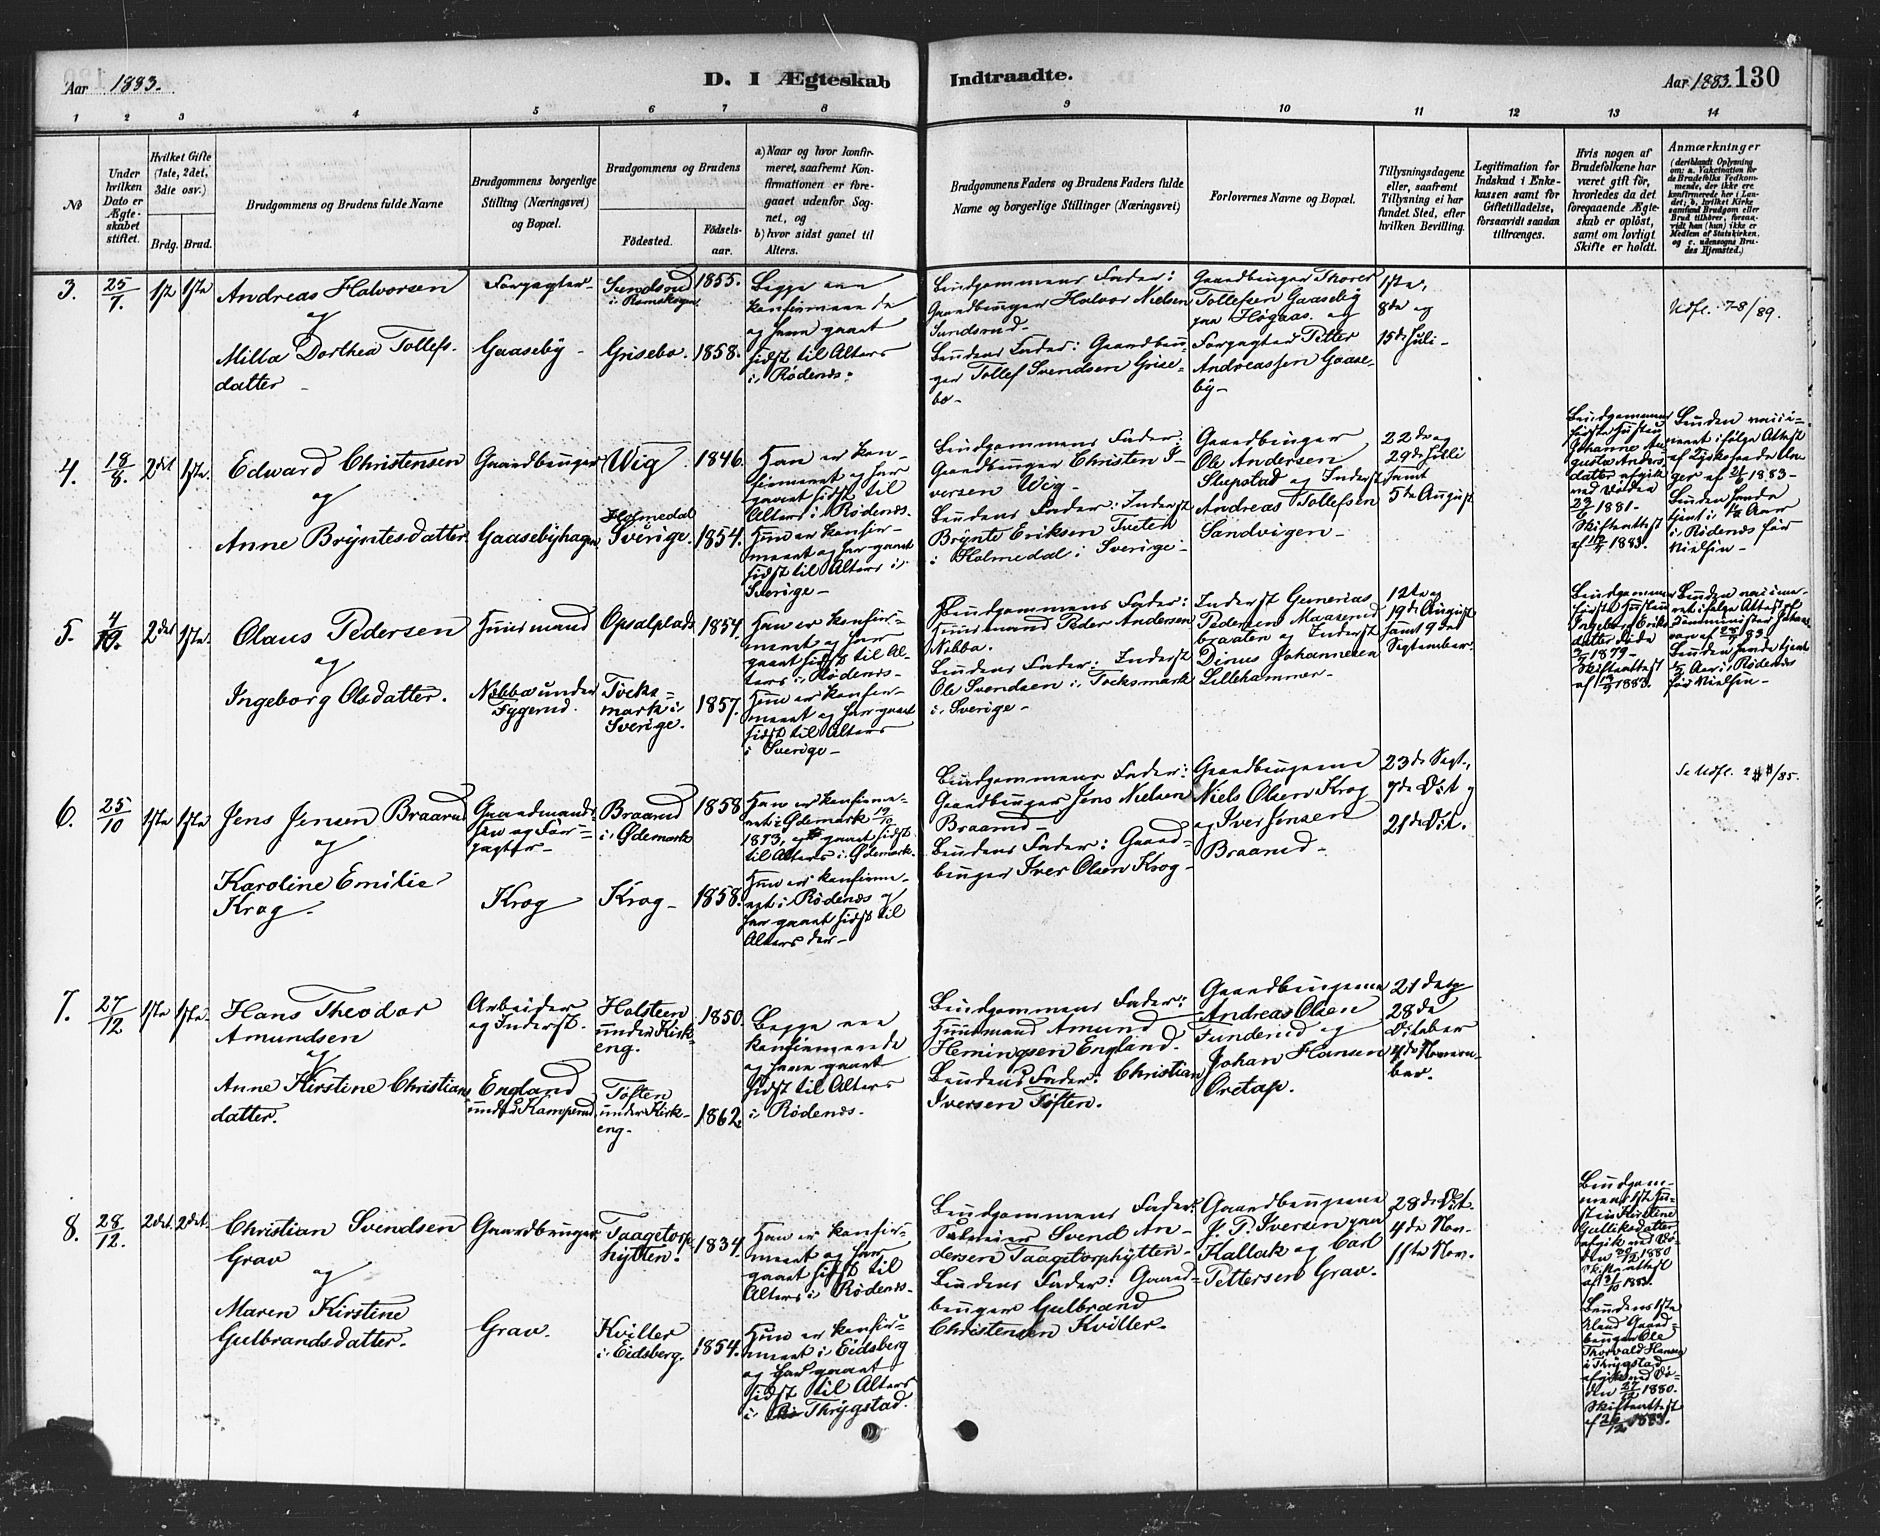 Aar 1883.
D. I Ægteskab Indtraadte.
Aar 1883. 130
1 2 3 4 5 6 7 8 9 10 11 12 13 14
No
Under hvilken Dato er Ægteskabet stiftet.
Hvilket Gifte (1ste, 2det, 3die osv.)
Brdg. Brud.
Brudgommens og Brudens fulde Navne
Brudgommens borgerlige Stilling (Næringsvei) og Bopæl.
Brudgommens og Brudens
Födested.
Födselsaar.
a) Naar og hvor konfirmeret, saafremt Konfirmationen er foregaaet udenfor Sognet, og
b) hvor sidst gaaet til Alters.
Brudgommens Faders og Brudens Faders fulde Navne og borgerlige Stillinger (Næringsvei)
Forlovernes Navne og Bopæl.
Tillysningsdagene eller, saafremt Tillysning ei har fundet Sted, efter hvilken Bevilling.
Legitimation for Indskud i Enkekassen samt for Giftetilladelse, forsaavidt saadan tiltrænges.
Hvis nogen af Brudefolkene har været gift för, hvorledes da det foregaaende Ægteskab er oplöst, samt om lovligt Skifte er holdt.
Anmærkninger
(deriblandt Oplysning om: a. Vakcination for de Brudefolks Vedkommende, der ikke ere konfirmerede her i Landet; b. hvilket Kirkesamfund Brudgom eller Brud tilhörer, forsaavidt han (hun) ikke er Medlem af Statskirken, og c. udensogns Brudes Hjemsted.)
3. 25/7. 1ste 1ste
Andreas Halvorsen
og
Milla Dorthea Tollefs-
datter
Forpagter
Gaaseby
Sundsrud
i Rømskogen
1855.
Grisebo. 1858.
Begge ere
konfirmerede
og have gaaet
sidst til Alters
i Rødenæs.
Brudgommens Fader:
Gaardbruger Halvor Nielsen
Sundsrud.
Brudens Fader: Gaardbru-
ger Tollef Svendsen Grise-
bo.
Gaardbruger Thorer
Tollefsen Gaaseby
paa Høgaas. og
Forpagter Petter
Andreassen Gaase-
by
1ste,
8de og
15de Juli
Udfl. 7-8/89.
4. 18/8. 2det 1ste.
Edward Christensen
og
Anne Bryntesdatter
Gaardbruger
Gaasebyhagen
Wig 1846.
Holmedal
Sverige. 1854.
Han er kon-
firmeret og har
gaaet sidst til
Alters i Rødenæs.
Hun er konfir-
meret og har gaaet
sidst til Alters i
Sverige
Brudgommens Fader:
Gaardbruger Christen I-
versen Wig
Brudens Fader: Inderst
Brynte Eriksen Tveten
i Holmedal i Sverige
Gaardbruger
Ole Andersen
Slupstad og Inderst
Andreas Tollefsen
Sandvigen
22de og
29de Juli
samt
5te August
Brudgommens
første Hustru
Johanne Au-
gusta Anders-
datter afgik
ved Døden
1881.
Skifteattest
af 1883.
Bruden vaccine-
ret ifølge Attest
af
af 1883
Bruden havde
tjent i 1½ Aar
i Rødenæs før
Vielsen
5. 4/9. 2det 1ste.
Olaus Pedersen
og
Ingeborg Olsdatter.
Husmand
Nabba under
Fyggerud.
Opsalplads 1854.
Tocks-
mark i
Sverige. 1857.
Han er konfir-
meret og har
gaaet sidst til Al-
ters i Rødenæs.
Hun er konfir-
meret og har gaaet
sidst til Alters
i Sverige
Brudgommens Fader:
Husmand Peder Andersen
Nabba.
Brudens Fader: Inderst
Ole Svendsen i Tocksmark
i Sverige
Inderst Gunerius
Pedersen Maaserud-
braaten og Inderst
Dinus Johannesen
Lillehammer
12te og
19de August
samt 9de
September.
Brudgommens
første Hustru
Ingeborg Eriks-
datter døde
1879
Skifteattest
af 1883.
Bruden vaccine-
ret ifølge Attest af
Bruden havde tjent
Aar i Rødenæs
før Vielsen
6. 25/10 1ste 1ste
Jens Jensen Braarud
og
Karoline Emilie
Krog.
Gaardmands-
søn og For-
pagter
Krog
Braarud
i Ødemark 1858
Krog 1858.
Han er konfirme-
ret i Ødemark 19/10
1873, og gaaet sidst
til Alters i Ødemark.
Hun er konfirme-
ret i Rødenæs og
har gaaet sidst til
Alters der
Brudgommens Fader:
Gaardbruger Jens Nielsen
Braarud
Brudens Fader: Gaard-
bruger Iver Olsen Krog
Gaardbrugerne
Niels Olsen Krog
og Iver Jensen
Braarud
23de Sept,
7de Okt og
21de Okt.
Se Udfl. /85.
7. 27/12 1ste 1ste.
Hans Theodor
Amundsen
og
Anne Kirstine Christians-
datter.
Arbeider
og Inderst.
England
under Kamperud
Holsteen
under Kirk-
eng. 1850.
Tøften
under Kirk-
eng. 1862.
Begge ere
konfirmerede
og have gaaet
sidst til Alters
i Rødenæs.
Brudgommens Fader:
Husmand Amund
Hemingsen England.
Brudens Fader: Christian
Iversen Tøften.
Gaardbrugerne
Andreas Olsen
Funderud og
Johan Hansen
Øretap.
21de og
28de
Oktober
4de Novem-
ber.
8. 28/12. 2det. 2det.
Christian Svendsen
Grav
og
Maren Kirstine
Gulbrandsdatter.
Gaardbruger
Grav.
Taagetorp-
hytten. 1834.
Kviller
i Eidsberg. 1854.
Han er konfir-
meret og har
gaaet sidst til
Alters i Rødenæs.
Hun er konfir-
meret i Eidsberg
og har gaaet
sidst til Alters
i Thrygstad.
Brudgommens Fader:
Selveier Svend An-
dersen Taagetorphytten
Brudens Fader: Gaard-
bruger Gulbrand
Christensen Kviller
Gaardbrugerne
J. P. Iversen paa
Kallak og Carl
Pettersen Grav.
28de Okt.
4de Nov.
11te Nov.
Brudgom-
mens 1ste Hu-
stru Kirstine
Gulliksdatter
afgik ved Dø-
den 1880
Skifteattest
af 1883.
Brudens 1ste
Mand Gaard-
bruger Ole
Thorvald Hansen
i Thrygstad
afgik ved Dø-
den 1880.
Skifteattest
af 1883.